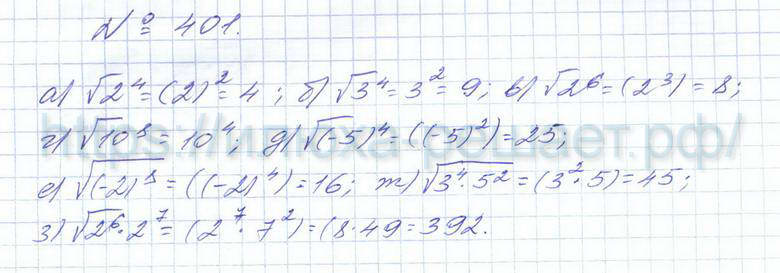 № 401.
а) √2⁴ = (2)² = 4 ; б) √3⁴ = 3² = 9; в) √2⁶ = (2³) = 8;
г) √10⁸ = 10⁴; д) √(-5)⁴ = ((-5)²) = 25;
е) √(-2)⁸ = ((-2)⁴) = 16; ж) √3⁴·5² = (3²·5) = 45;
з) √2⁶·2⁷ = (2⁷·7²) = (8·49 = 392.
https://илюха-решает.рф/